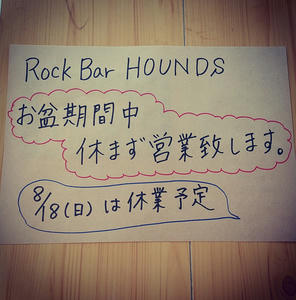 Rock Bar HOUNDS
お盆期間中
休まず営業致します。
8/18(日)は休業予定